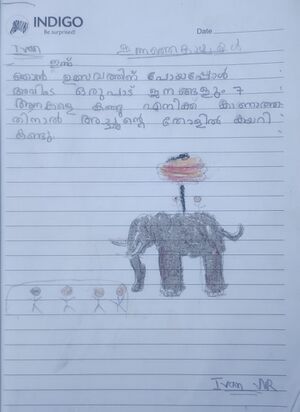 INDIGO
Be surprised!
Date
Ivan
ഇന്ന്
ഞാൻ ഉത്സവത്തിന് പോയപ്പോൾ
അവിടെ ഒരുപാട് ജനങ്ങളും 7
ആനകളെ കണ്ടു എനിക്ക് കാണാത്ത
തിനാൽ അച്ഛന്റെ തോളിൽ കയറി
കണ്ടു
Ivan AR